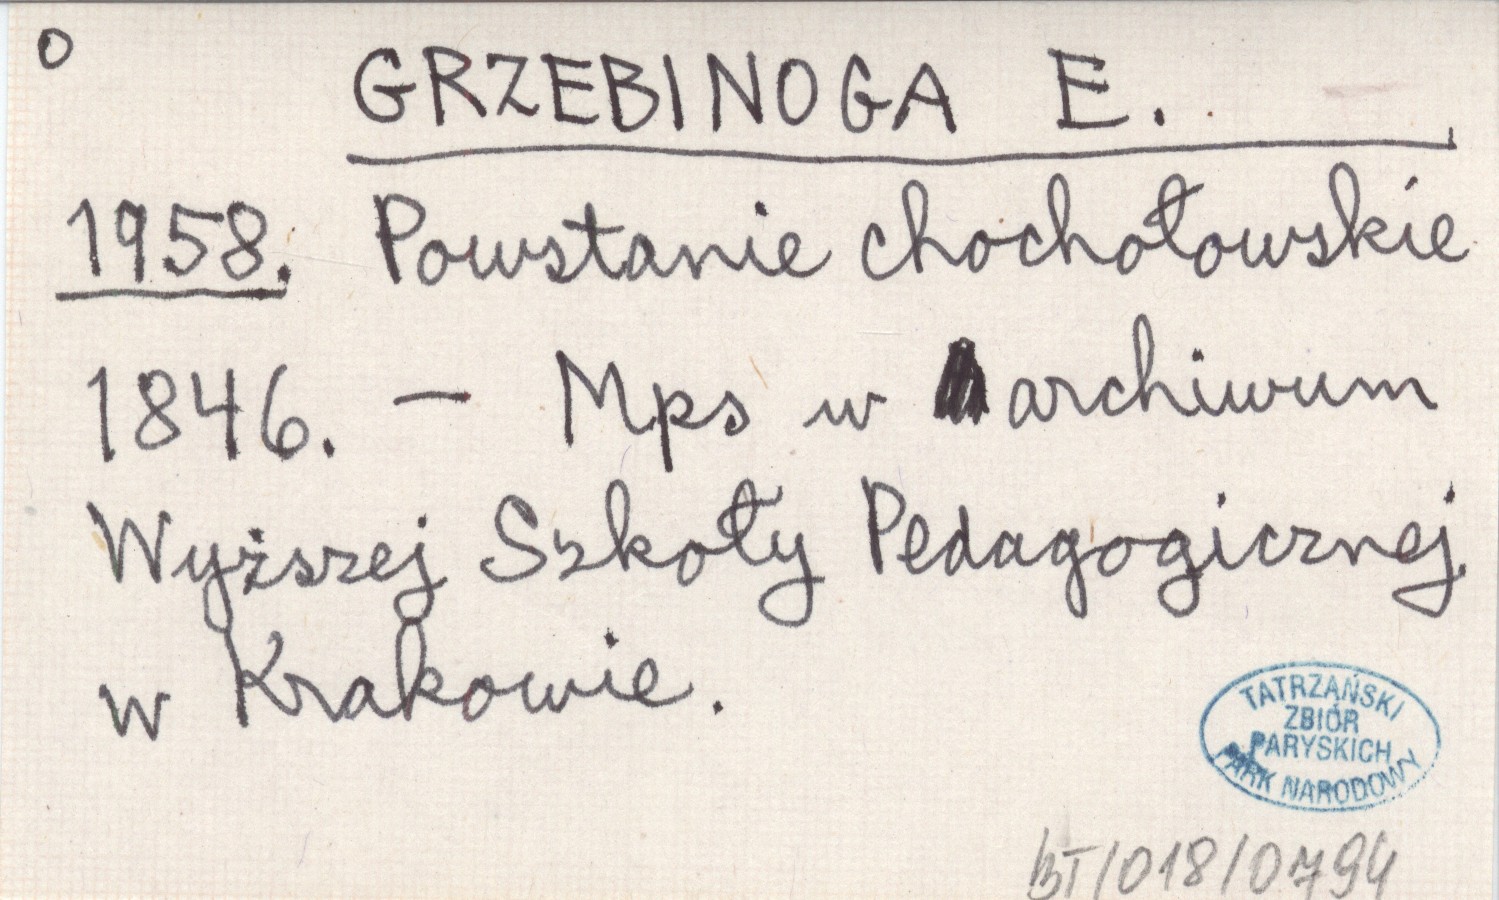 O
GRZEBINOGA E.
1958. Powstanie chochołowskie
1846. — Mps w archiwum
Wyższej Szkoły Pedagogicznej
w Krakowie.
TATRZAŃSKI
ZBIÓR
PARYSKICH
PARK NARODOWY
BT/018/0794